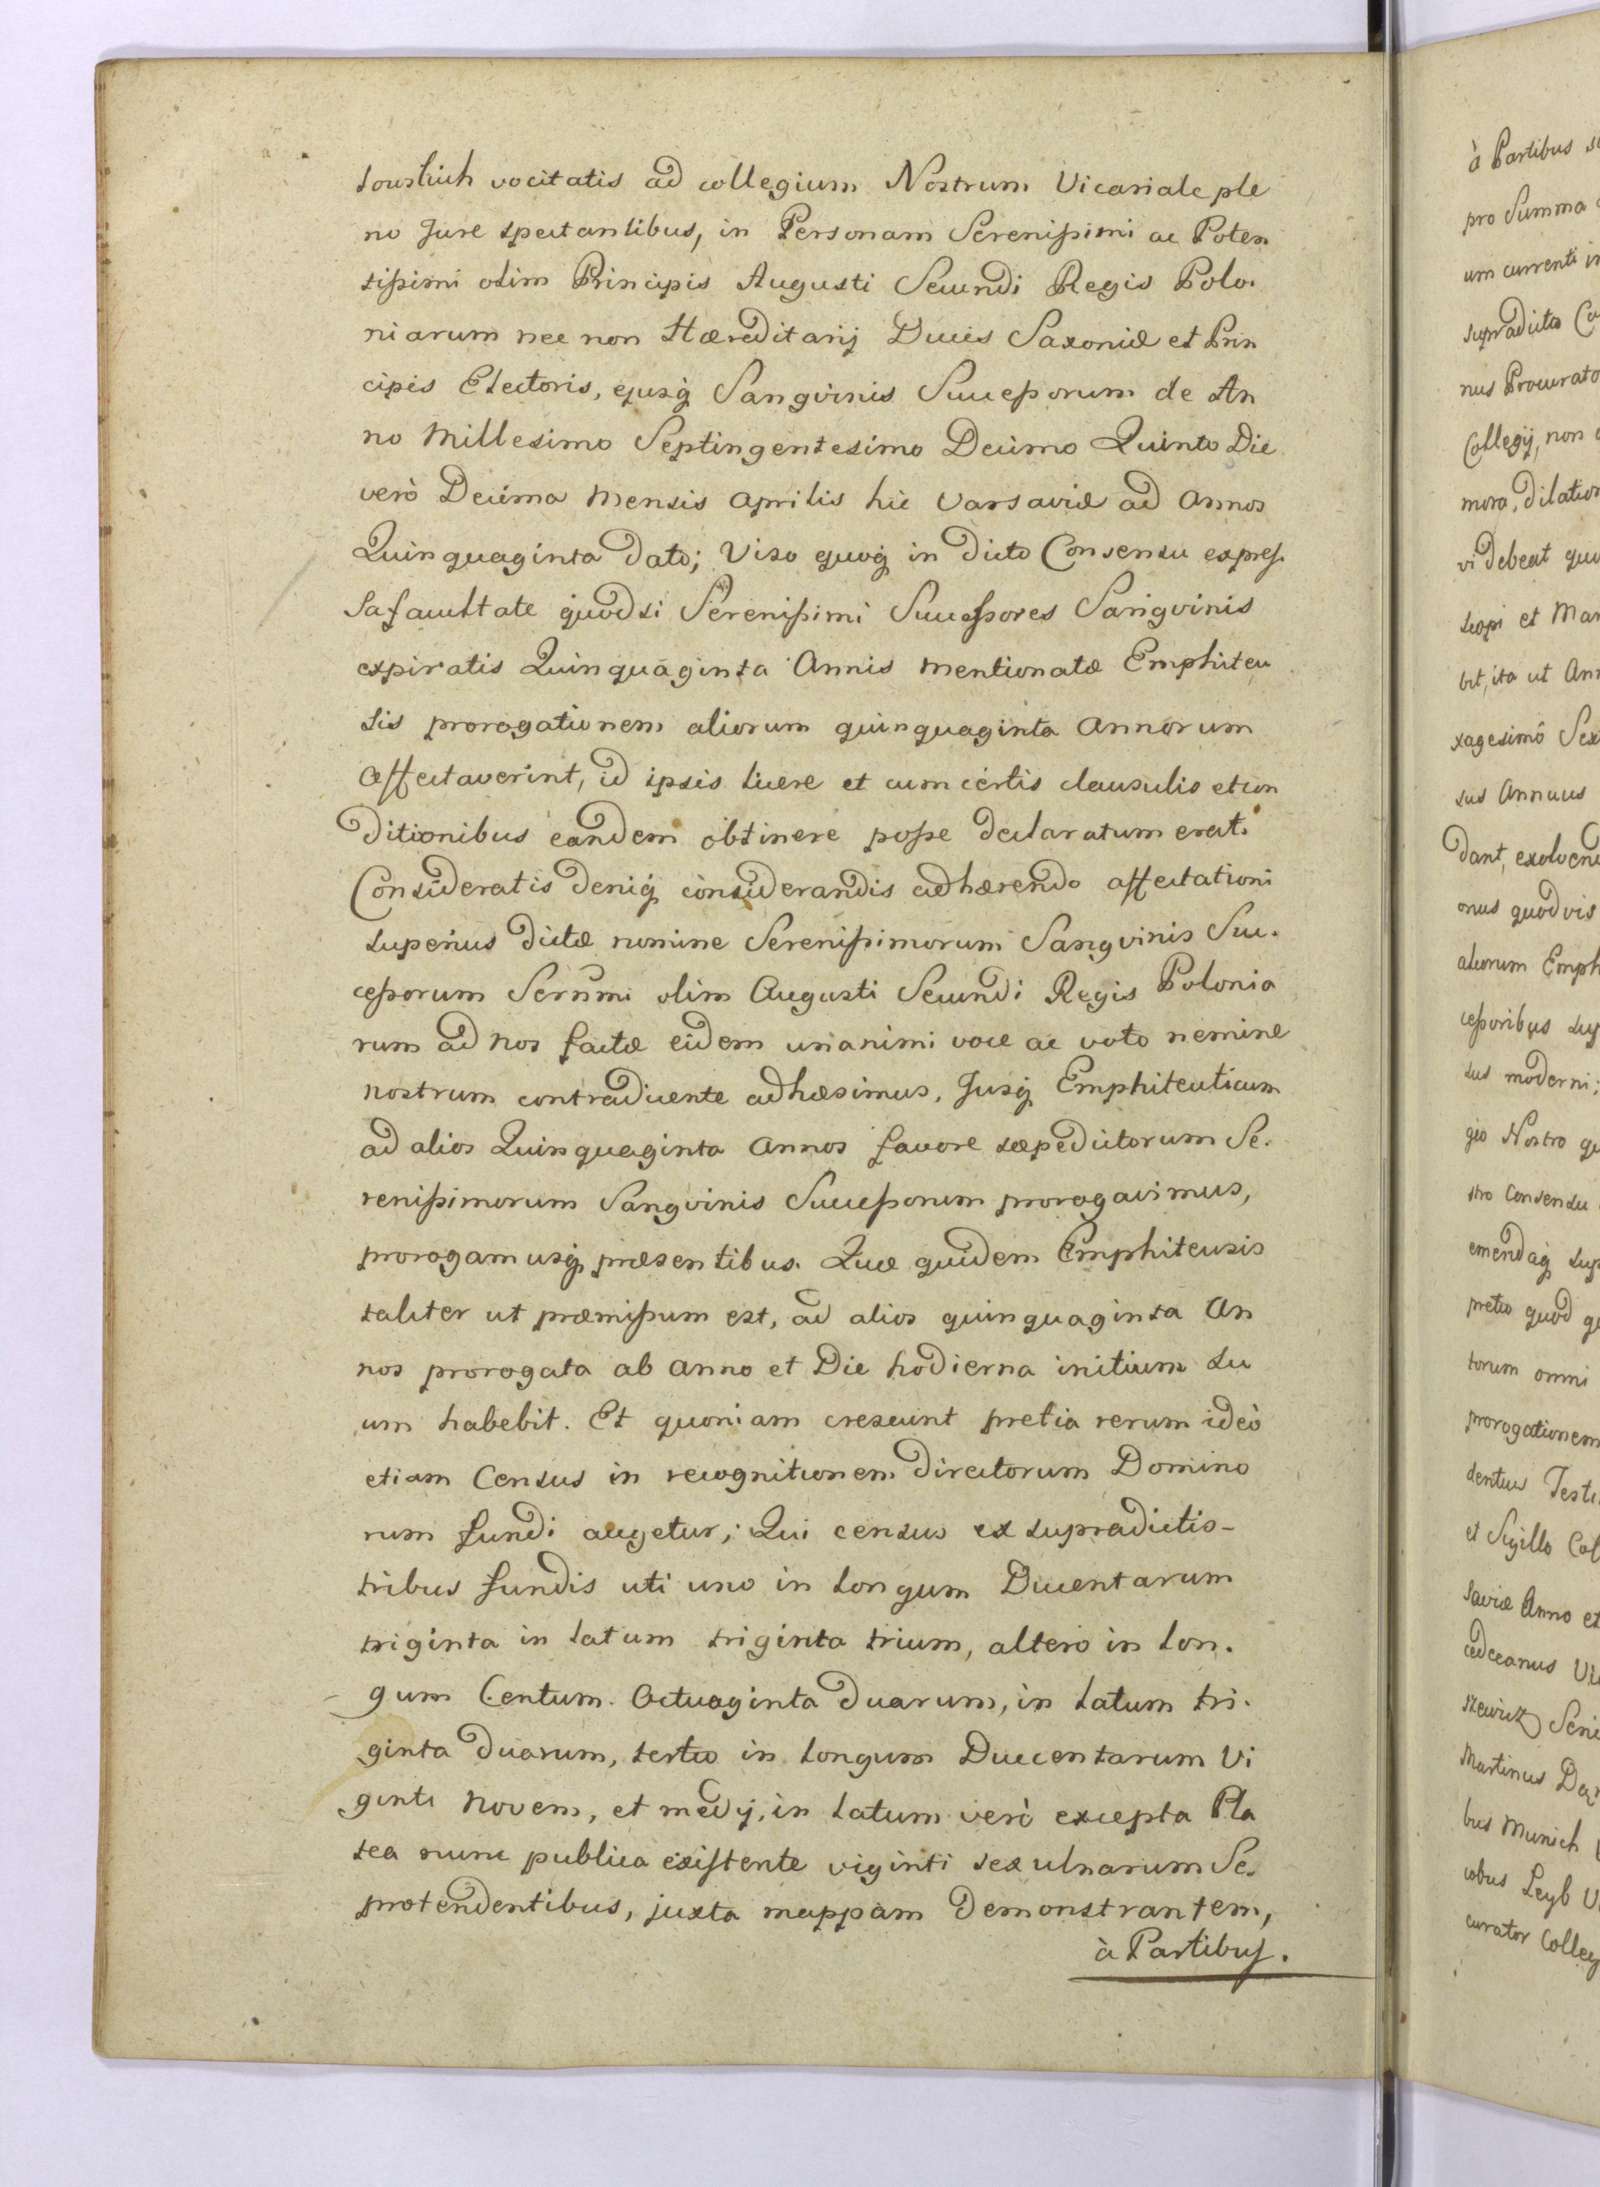 vocitatis ad collegium Nostrum Vicariale ple
no Jure spectantibus, in Personam Serenissimi ac Poten
tissimi olim Principis Augusti Secundi Regis Polo.
niarum nec non Hæreditarij Ducis Saxoniæ et Prin
cipis Electoris, ejusq́ Sangvinis Successorum de An
no Millesimo Septingentesimo Decimo Quinto Die
verò Decima Mensis Aprilis hic Varsaviæ ad Annos
Quinquaginta dato; Viso quoq́ in dicto Consensu expres.
sa facultate quod si Serenissimi Successores Sangvinis
expiratis Quinquaginta Annis mentionatæ Emphiteu
sis prorogationem aliorum quinquaginta Annorum
affectaverint, id ipsis licere et cum certis clausulis et con
ditionibus eandem obtinere posse declaratum erat.
Consideratis deniq́ considerandis adhærendo affectationi
superius dictæ nomine Serenissimorum Sangvinis Suc.
cessorum Serñmi olim Augusti Secundi Regis Polonia
rum ad nos factæ eidem unanimi voce ac voto nemine
nostrum contradicente adhæsimus, Jusq́ Emphiteuticum
ad alios Quinquaginta Annos favore sæpedictorum Se.
renissimorum Sangvinis Successorum prorogavimus,
prorogamusq́ præsentibus. Quæ quidem Emphiteusis
taliter ut præmissum est, ad alios quinquaginta An
nos prorogata ab Anno et Die hodierna initium su
um habebit. Et quoniam crescunt pretia rerum ideò
etiam Census in recognitionem directorum Domino
rum fundi augetur; Qui census ex supradictis-
tribus fundis uti uno in longum Ducentarum
triginta in latum triginta trium, altero in lon.
gum Centum Octuaginta duarum, in latum tri.
ginta duarum, tertio in longum Ducentarum Vi
ginti Novem, et medij, in latum verò excepta Pla
tea nunc publica existente viginti sex ulnarum Se.
protendentibus, juxta mappam demonstrantem,
à Partibus.
à Partibus
pro Summa
um currenti
supradicto
nus
Collegij, non
mora,
vi debeat
et
bit, ita ut
xagesimô
sus Annuus
dant,
onus quodvis
aliorum
cessoribus
sus moderni;
gio Nostro
stro Consensu
emendaq́
pretio quod
torum omni
prorogationem
dentius
et Sigillo
saviæ Anno et

Martinus
bus Munich
cobus Leyb
curator